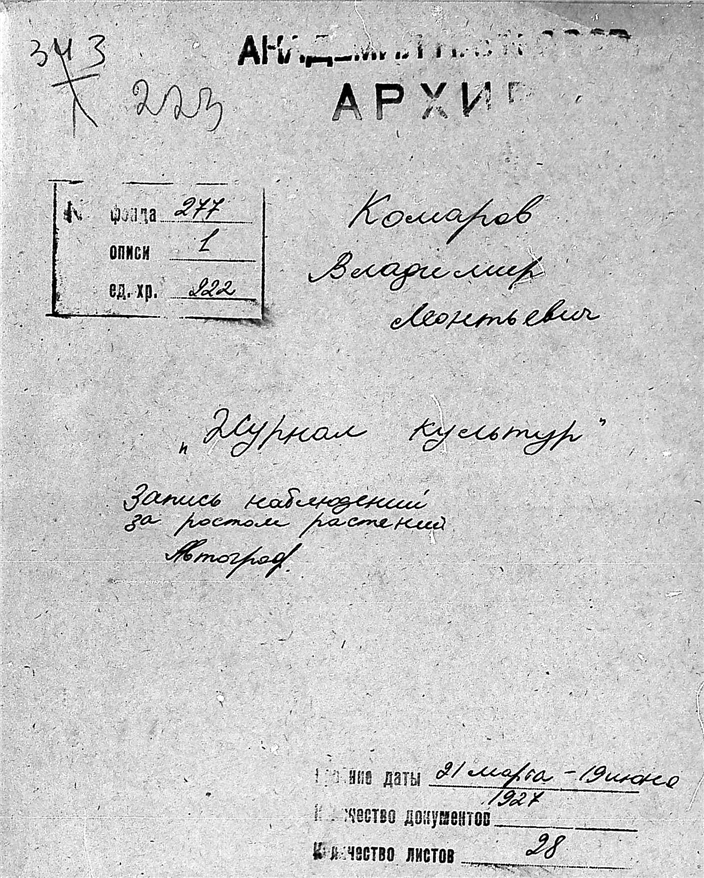 343
223
АКАДЕМИЯ НАУК СССР
АРХИВ
№ фонда 277
описи 1
ед. хр. 222
Комаров
Владимир
Леонтьевич
„Журнал культур"
Запись наблюдений
за ростом растений
Автограф.
даты 21 марта - 19 июня
1927
Количество документов
Количество листов 28